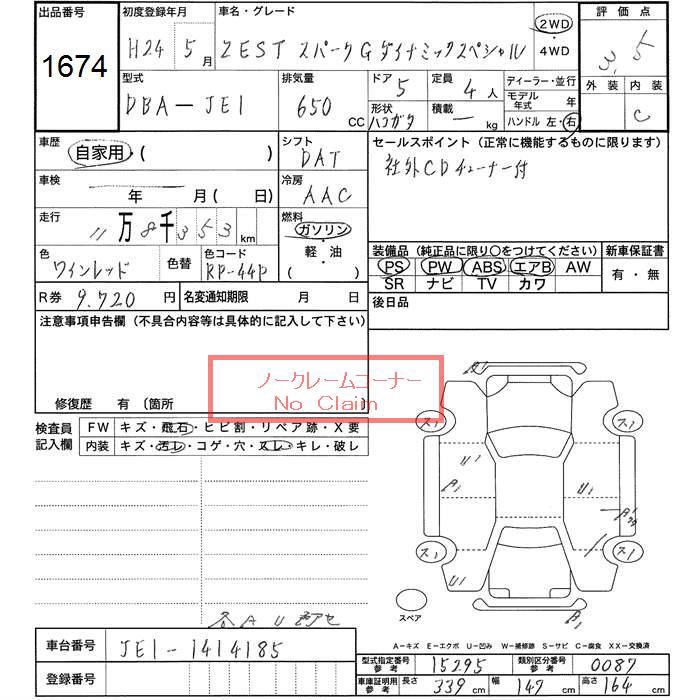 出品番号
1674
初度登録年月
H24 5月
車名・グレード
ZEST スパークG ダイナミックスペシャル
2WD
・4WD
評価点
3.5
外装 内装
C
型式
DBA-JE1
排気量
650 CC
ドア 5
形状 ハコガタ
定員 4人
積載 ー kg
ディーラー・並行
モデル年式 年
ハンドル 左・右
車歴
自家用・( )
シフト
DAT
セールスポイント(正常に機能するものに限ります)
社外CDチューナー付
車検
年 月(日)
冷房
AAC
走行
11万8千353km
燃料
ガソリン
・軽・油
( )
色
ワインレッド
色替
色コード
RP-44P
装備品(純正品に限り○をつけてください)
新車保証書
PS PW ABS エアB AW
SR ナビ TV カワ
有・無
R券 9.720円
名変通知期限 月 日
後日品
注意事項申告欄(不具合内容等は具体的に記入して下さい)
ノークレームコーナー
No Claim
修復歴 有(箇所
検査員記入欄
FW キズ・飛石・ヒビ割・リペア跡・X要
内装 キズ・汚レ・コゲ・穴・スレ・キレ・破レ
ス1 ス1
U1
B1 U1
ス1 ス1
U1
スペア
B1
A-キズ E-エクボ U-凹み W-補修跡 S-サビ C-腐食 XX-交換済
車台番号 JE1-1414185
登録番号
型式指定番号参考 15295 類別区分番号参考 0087
車庫証明用参考 長さ 339cm 幅 147cm 高さ 164cm